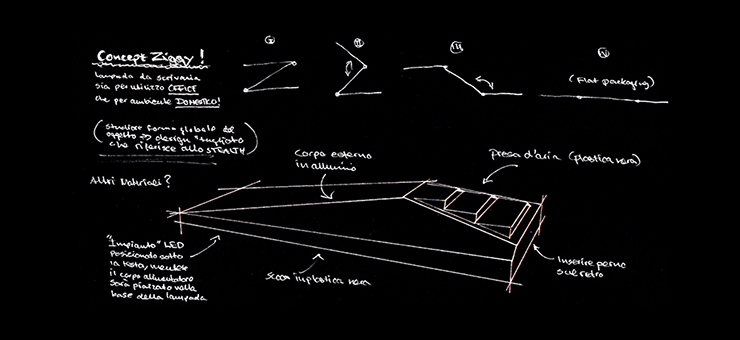 Concept Ziggy!
lampada da scrivania
sia per utilizzo OFFICE
che per ambiente DOMESTICO!
(studiare forma globale del
oggetto => design "tagliato"
che riferisce allo STEALTH)
Altri Materiali?
I
II
III
V
(Flat packaging)
Corpo esterno
in alluminio
presa d'aria (plastica nera)
"Impianto" LED
posizionando sotto
la testa, mentre
il corpo alimentatore
sarà piazzato nella
base della lampada
in plastica nera
Inserire perno
sul retro